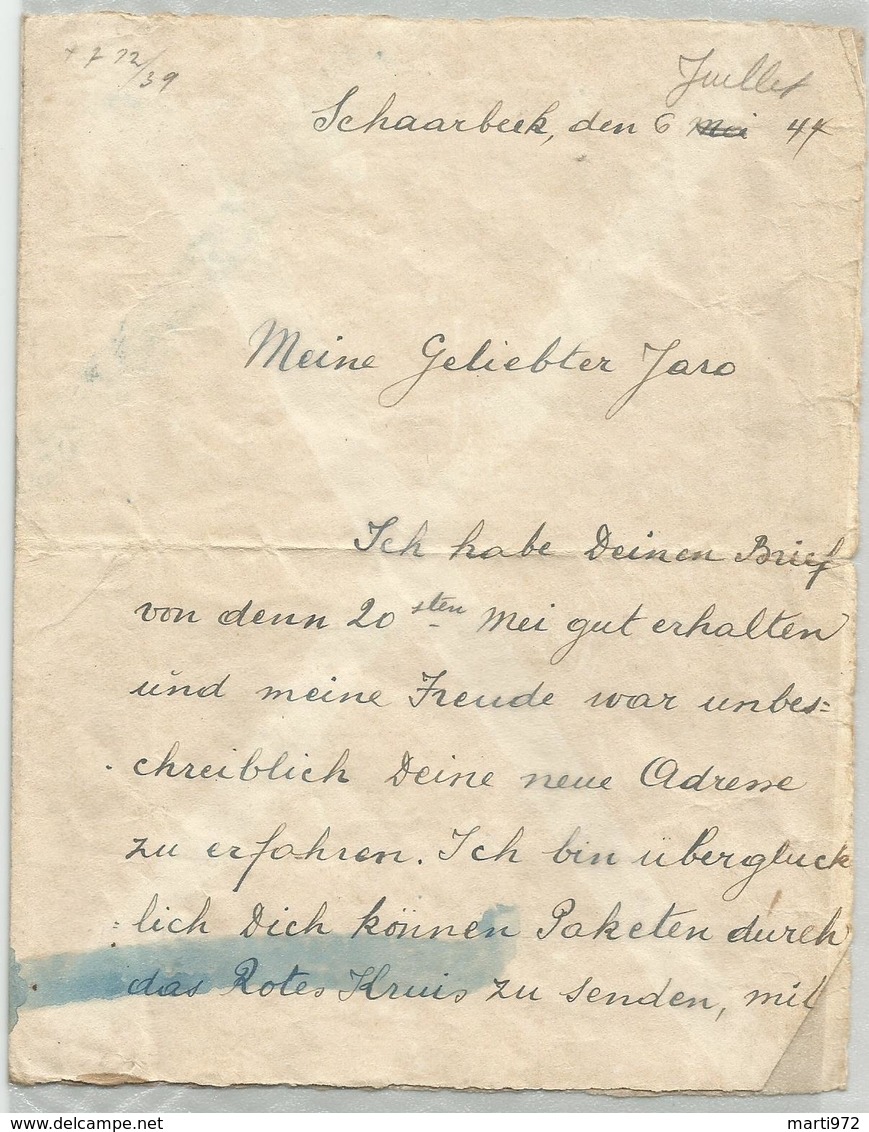 + 7 12/39
Juillet
Schaarbeek, den 6 Mei 44
Meine Geliebter Jaro
Ich habe Deinen Brief
von denn 20 sten Mei gut erhalten
und meine Freude war unbes=
chreiblich Deine neue Adresse
zu erfahren. Ich bin überglück
=lich Dich können Paketen durch
das Rotes Kruis zu senden, mit
delcampe.net
marti972